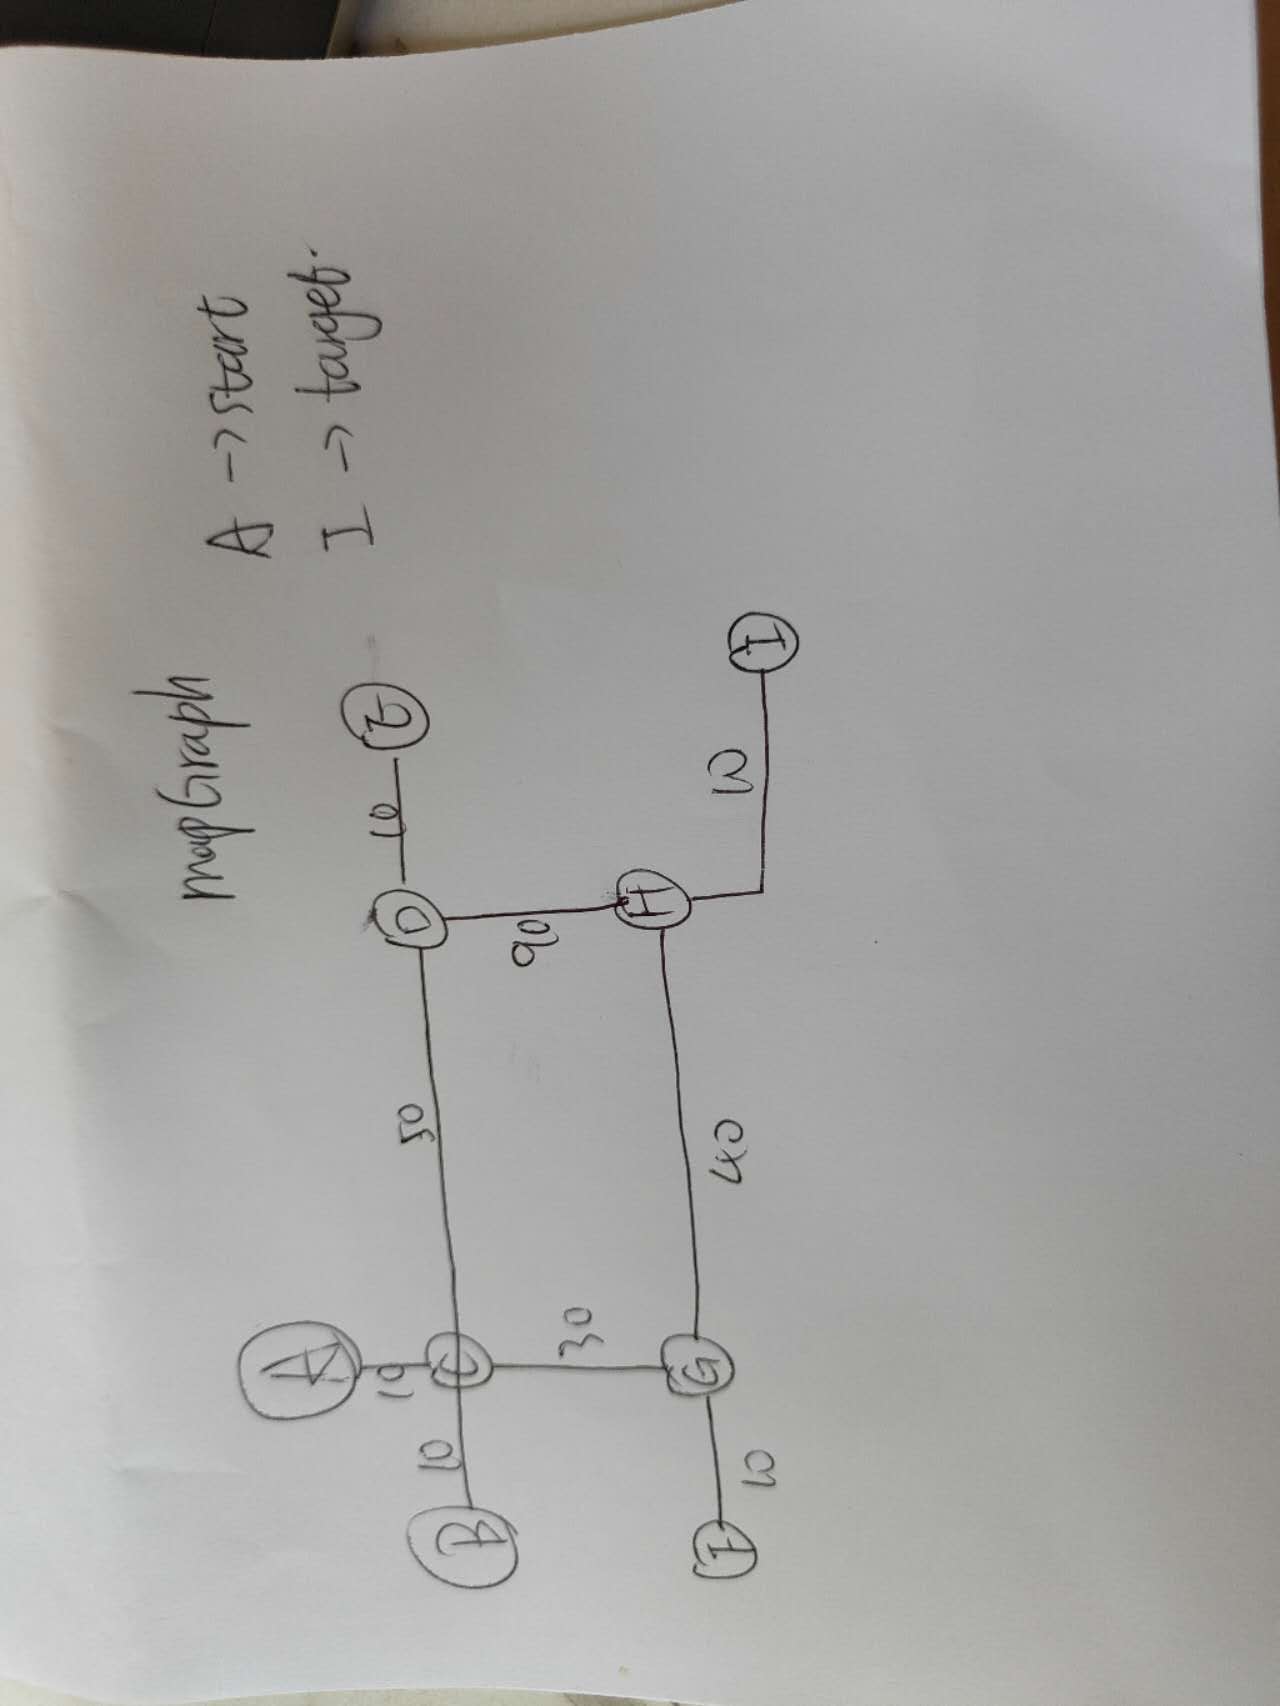 mapGraph
A -> start
I -> target.
A
10
B
10
C
50
D
10
E
30
90
G
40
H
10
I
10